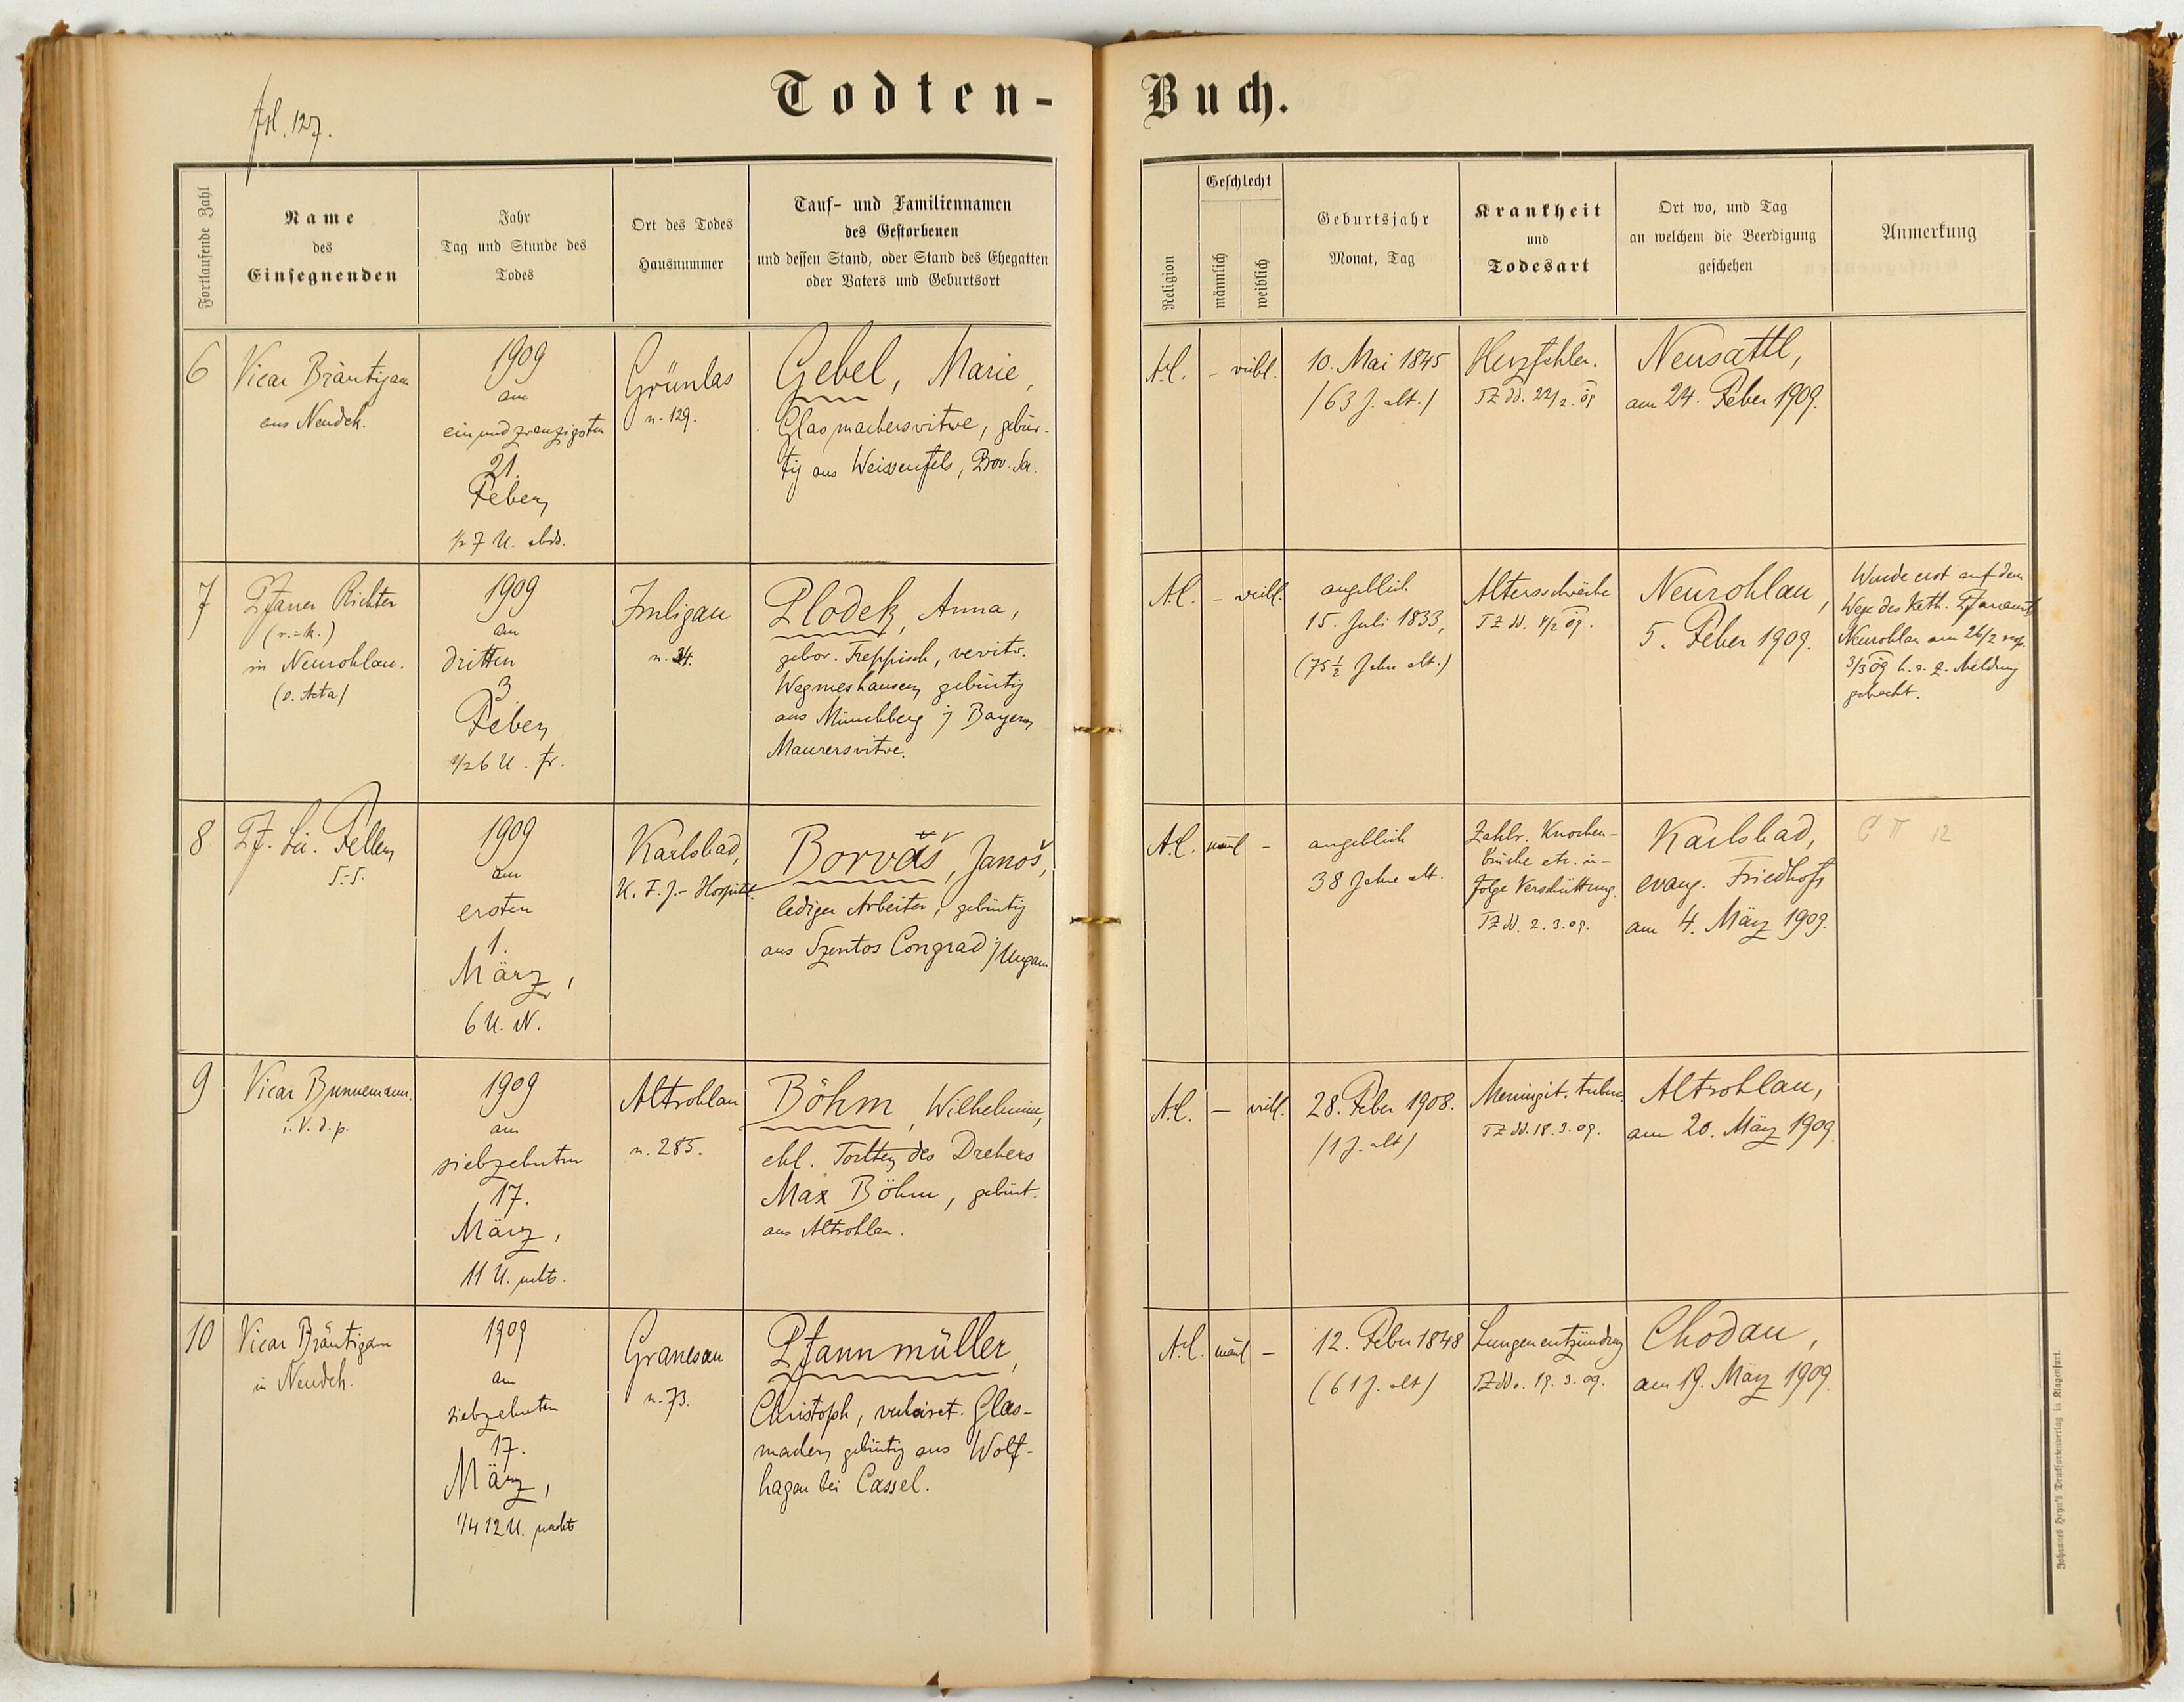 fol. 127.
Todten-Buch.
Fortlaufende Zahl
Name
des
Einsegnenden
Jahr
Tag und Stunde des
Todes
Ort des Todes
Hausnummer
Tauf- und Familiennamen
des Gestorbenen
und dessen Stand, oder Stand des Ehegatten
oder Vaters und Geburtsort
Religion
Geschlecht
männlich
weiblich
Geburtsjahr
Monat, Tag
Krankheit
und
Todesart
Ort wo, und Tag
an welchem die Beerdigung
geschehen
Anmerkung
6
Vicar Bräutigam
aus Neudek.
1909
am
einundzwanzigsten
21.
Feber,
1/2 7 U. abds.
Grünlas
n. 129.
Gebel, Marie,
Glasmacherswitwe, gebür-
tig aus Weissenfels, Prov. Sa.
A.C.
-
weibl.
10. Mai 1845
/63 J. alt./
Herzfehler.
TZ dd. 22/2. 09
Neusattl,
am 24. Feber 1909.
7
Pfarrer Richter
(r.=k.)
in Neurohlau.
(s. Acta)
1909
am
dritten
3
Feber,
1/2 6 U. fr.
Imligau
n. 34.
Plodek, Anna,
gebor. Treppisch, verwitw.
Wegmeshausen, gebürtig
aus Münchberg i/ Bayern,
Maurerswitwe.
A.C.
-
weibl.
angeblich
15. Juli 1833,
(75 1/2 Jahre alt.)
Altersschwäche
TZ dd. 4/2 09.
Neurohlau,
5. Feber 1909.
Wurde erst auf dem
Wege des kath. Pfarramts
Neurohlau am 26/2 resp.
3/3 09 h. a. z. Meldung
gebracht.
8
Pf. Lic. Feller,
1909
am
ersten
1.
März,
6 U. N.
Karlsbad,
K. F. J.- Hospital.
Borváš, Janoš,
lediger Arbeiter, gebürtig
aus Szentos Congrad i/ Ungarn
A.C.
männl
-
angeblich
38 Jahre alt.
Zahlr. Knochen-
brüche etc. in-
folge Verschüttung.
TZ dd. 2. 3. 09.
Karlsbad,
evang. Friedhof,
am 4. März 1909.
C II 12
9
Vicar Bunnemann.
i. V. d. p.
1909
am
siebzehnten
17.
März,
11 U. nchts.
Altrohlau
n. 285.
Böhm, Wilhelmine,
ehl. Tochter, des Drehers
Max Böhm, gebürt.
aus Altrohlau.
A.C.
-
weibl.
28. Feber 1908.
/1 J. alt/
Meningit. tuberc.
TZ dd. 18. 3. 09.
Altrohlau,
am 20. März 1909.
10
Vicar Bräutigam
in Neudek.
1909
am
siebzehnten
17.
März,
1/4 12 U. nachts
Granesau
n. 73.
Pfannmüller,
Christoph, verheiret. Glas-
macher, gebürtig aus Wolf-
hagen bei Cassel.
A.C.
männl
-
12. Feber 1848
(61 J. alt)
Lungenentzündung
TZ dd. 19. 3. 09.
Chodau,
am 19. März 1909.
Johannes Heyn's Drucksortenverlag in Klagenfurt.